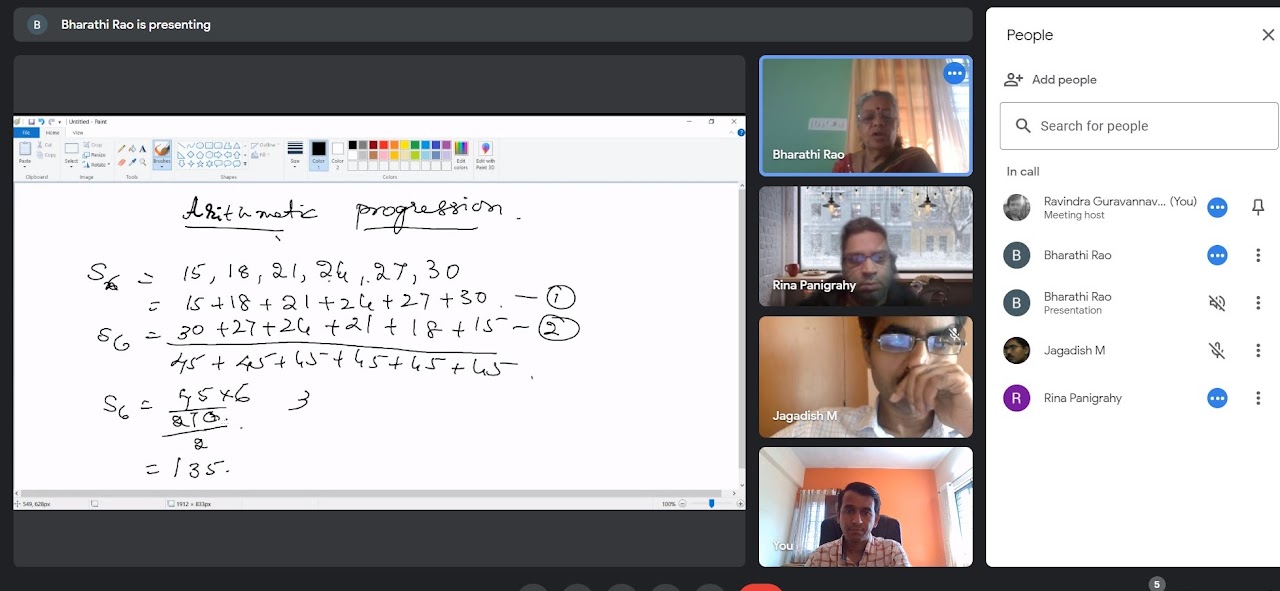 B Bharathi Rao is presenting
Untitled - Paint
File Home View
Paste Cut Copy Select Crop Resize Rotate A Brushes Outline Fill Size Color 1 Color 2 Edit colors Edit with Paint 3D
Clipboard Image Tools Shapes Colors
Arithmatic progression.
S6 = 15, 18, 21, 24, 27, 30
= 15+18+21+24+27+30. — ①
S6 = 30+27+24+21+18+15 — ②
45+45+45+45+45+45.
S6 = 45×6 3
270.
2
= 135.
549, 628px 1912 × 833px 100%
Bharathi Rao
Rina Panigrahy
Jagadish M
You
People
Add people
Search for people
In call
Ravindra Guravannav... (You)
Meeting host
B Bharathi Rao
B Bharathi Rao
Presentation
Jagadish M
R Rina Panigrahy
5